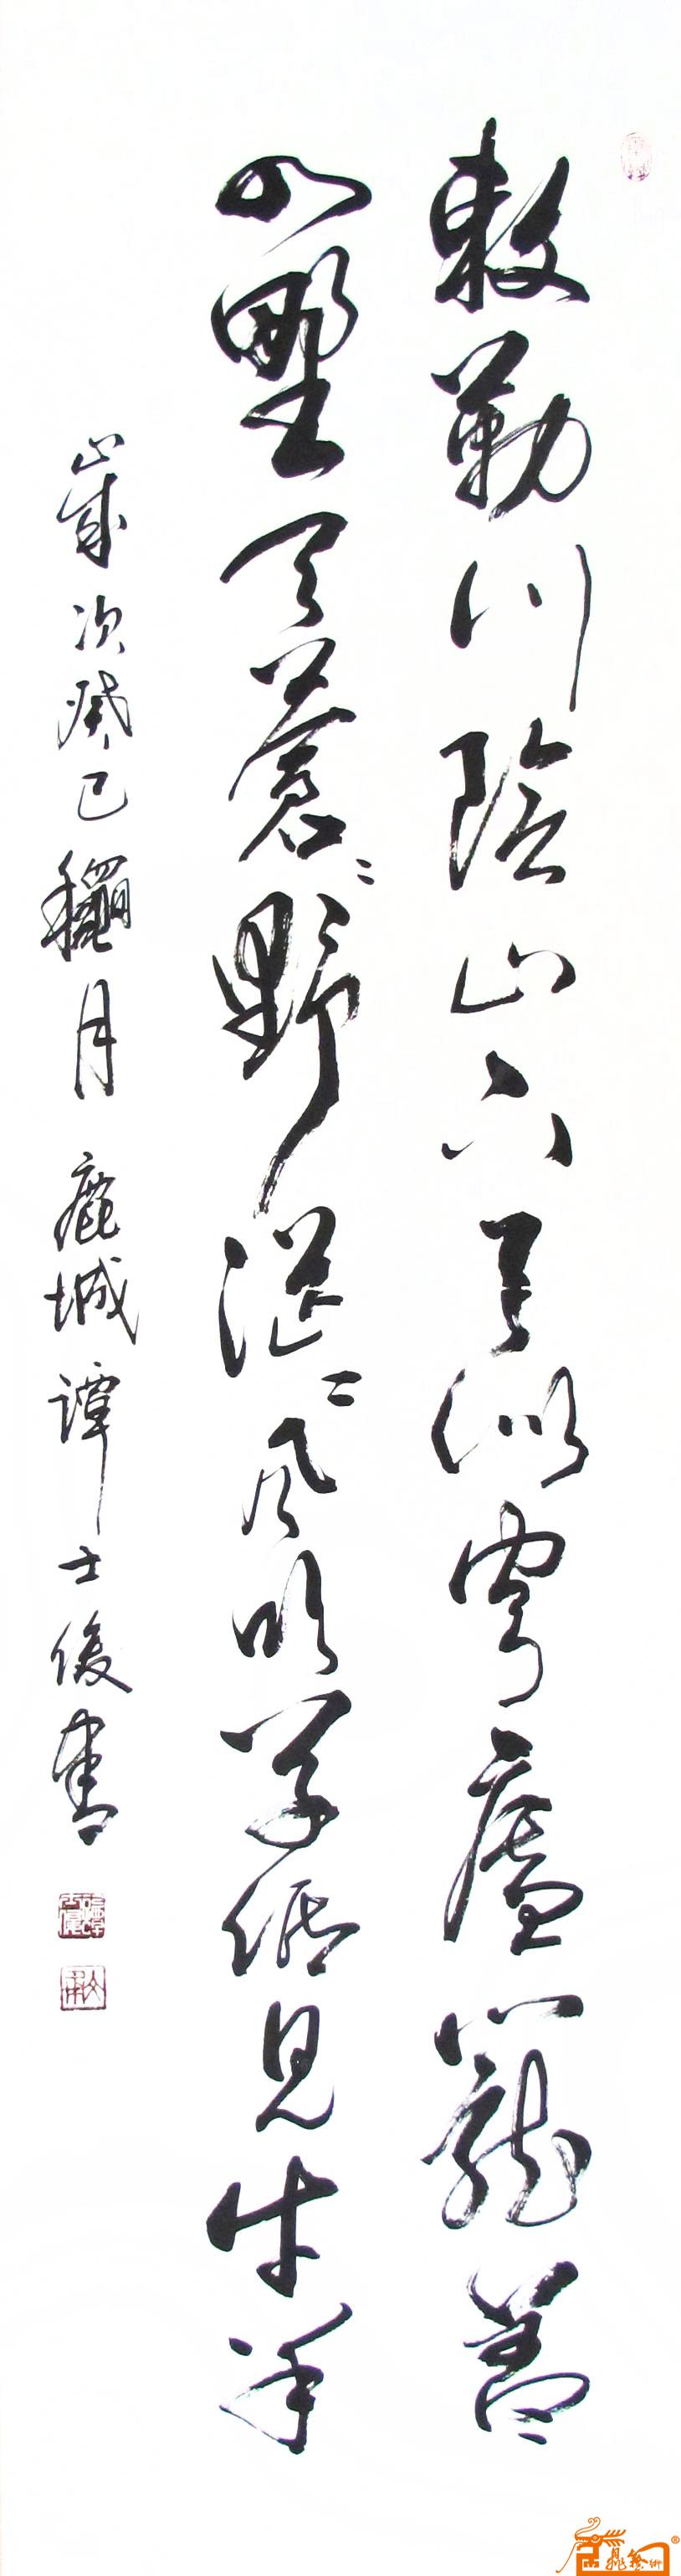 敕勒川陰山下天似穹廬籠蓋
四壄天蒼〻野茫〻風吹草低見牛羊
歲次癸巳龝月 鹿城譚士俊書